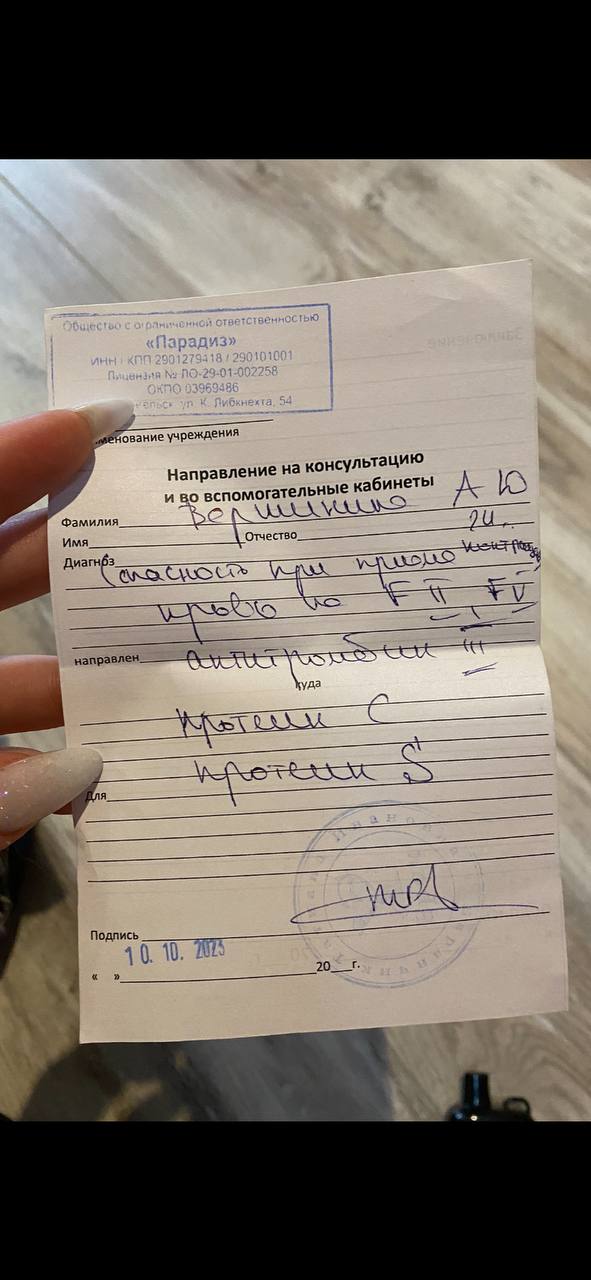 Общество с ограниченной ответственностью
«Парадиз»
ИНН / КПП 2901279418 / 290101001
Лицензия № ЛО-29-01-002258
ОКПО 03969486
ул. К. Либкнехта, 54
именование учреждения
Направление на консультацию
и во вспомогательные кабинеты
Фамилия Вершинина А Ю
Имя Отчество
Диагноз опасность при приеме
кровь на F II F V
направлен антитромбин III
куда
протеин С
протеин S
Для
Подпись
10. 10. 2023
« » 20 г.